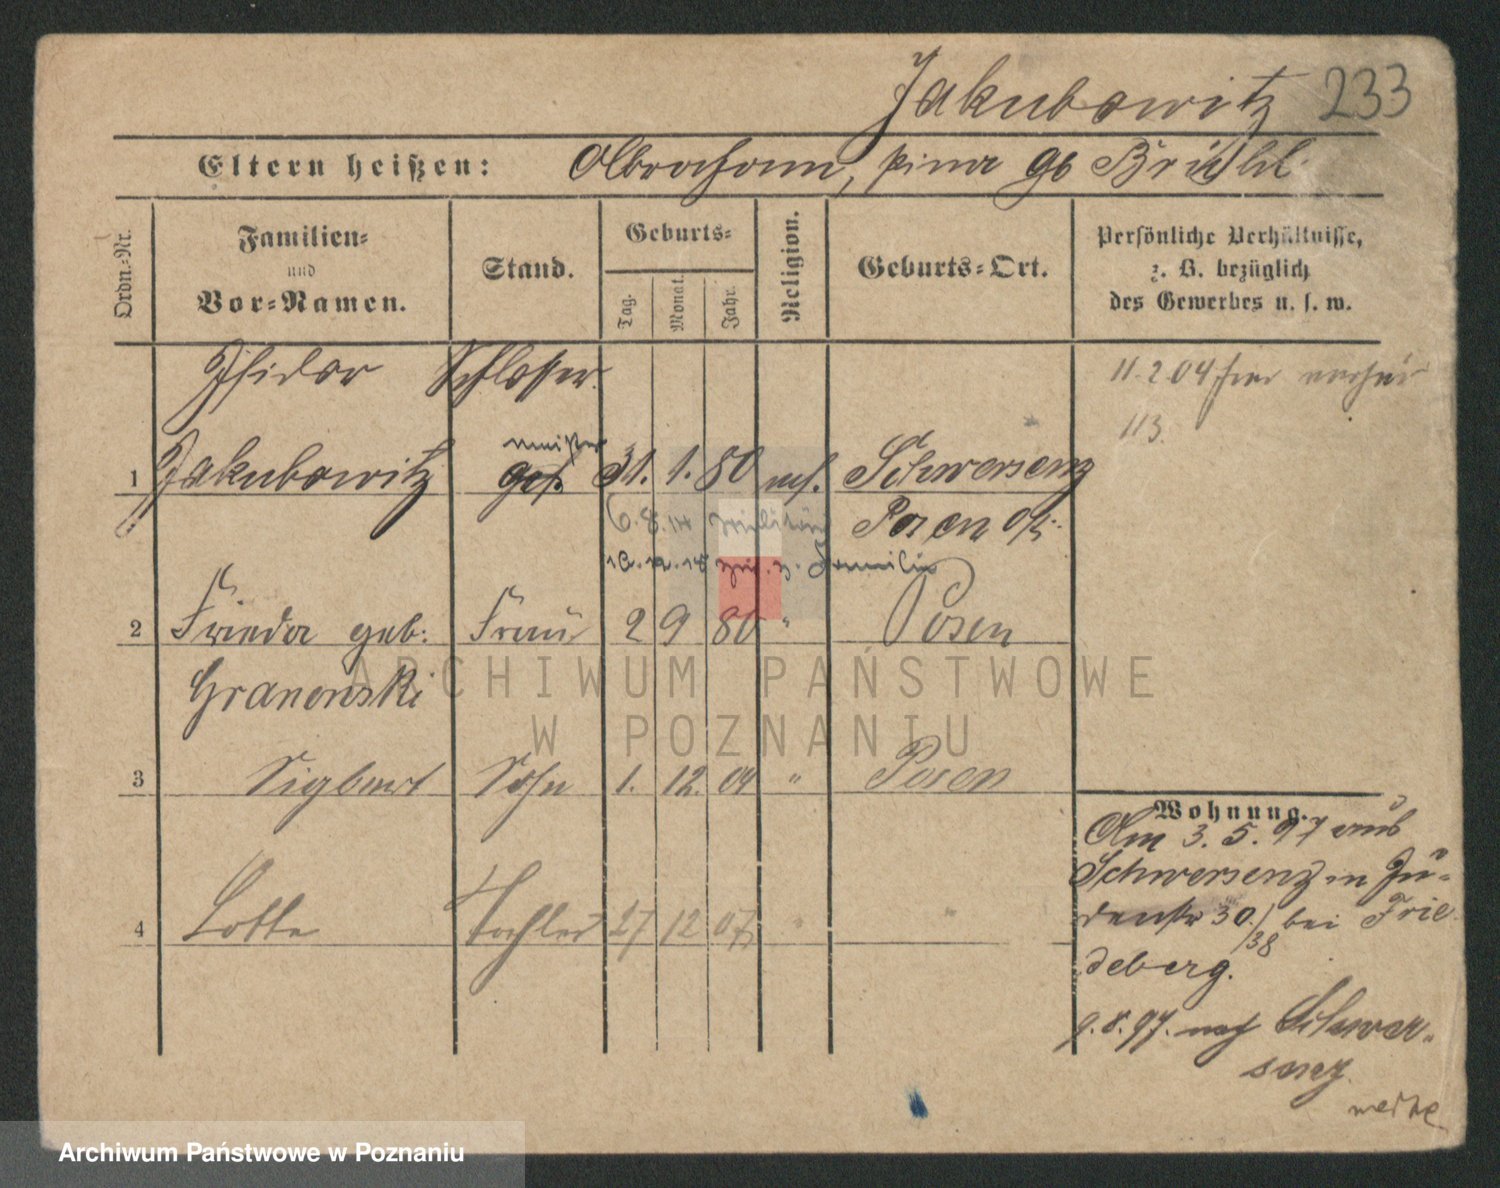 Jakubowitz 233
Eltern heißen: Abraham, geb Brühl
Ordn.=Nr.
Familien=
und
Vor=Namen.
Stand.
Geburts=
Tag.
Monat.
Jahr.
Religion.
Geburts=Ort.
Persönliche Verhältnisse,
z. B. bezüglich
des Gewerbes u. s. w.
Isidor Schlosser
11.2.04 hier
113.
meister
1 Jakubowitz ges. 31. 1. 80 mos. Schwersenz
6.8.14 Militär Posen O/
18.12.18 z. Familie
2 Frieda geb: Frau 2 9 80 " Posen
Granowski
3 Sigbert Sohn 1. 12. 04 " Posen
4 Lotte Tochter 27 12 07 " "
Wohnung.
Am 3. 5. 97 aus
Schwersenz in Jü-
denstr 30/38 bei Frie
deberg.
9.8.97. nach Schwer-
senz
ARCHIWUM PAŃSTWOWE
W POZNANIU
Archiwum Państwowe w Poznaniu